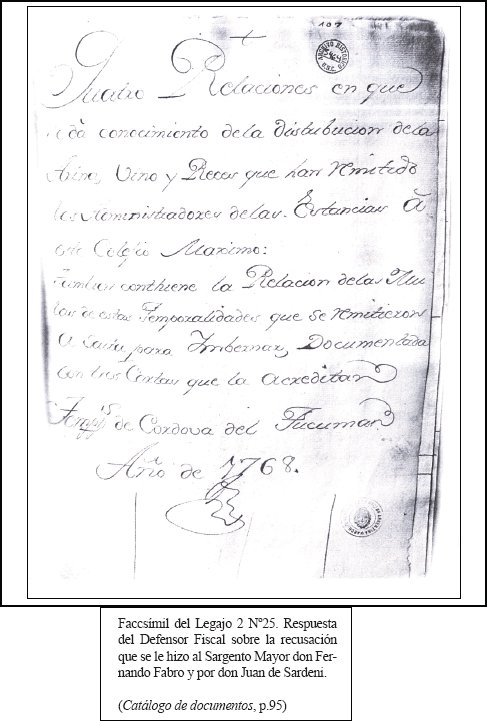 109
Quatro Relaciones en que
se dâ conocimiento de la distribucion de la
Arina, Vino y Reces que han remitido
los Administradores de las Estancias â
este Colegio Maximo:
Tambien conthiene la Relacion de las Mu
las de estas Temporalidades que se remitieron
a Salta para Imbernar, Documentada
con tres Cartas que la acreditan
de Cordova del Tucuman
Año de 1768.
Faccsímil del Legajo 2 Nº25. Respuesta
del Defensor Fiscal sobre la recusación
que se le hizo al Sargento Mayor don Fer-
nando Fabro y por don Juan de Sardeni.
(Catálogo de documentos, p.95)